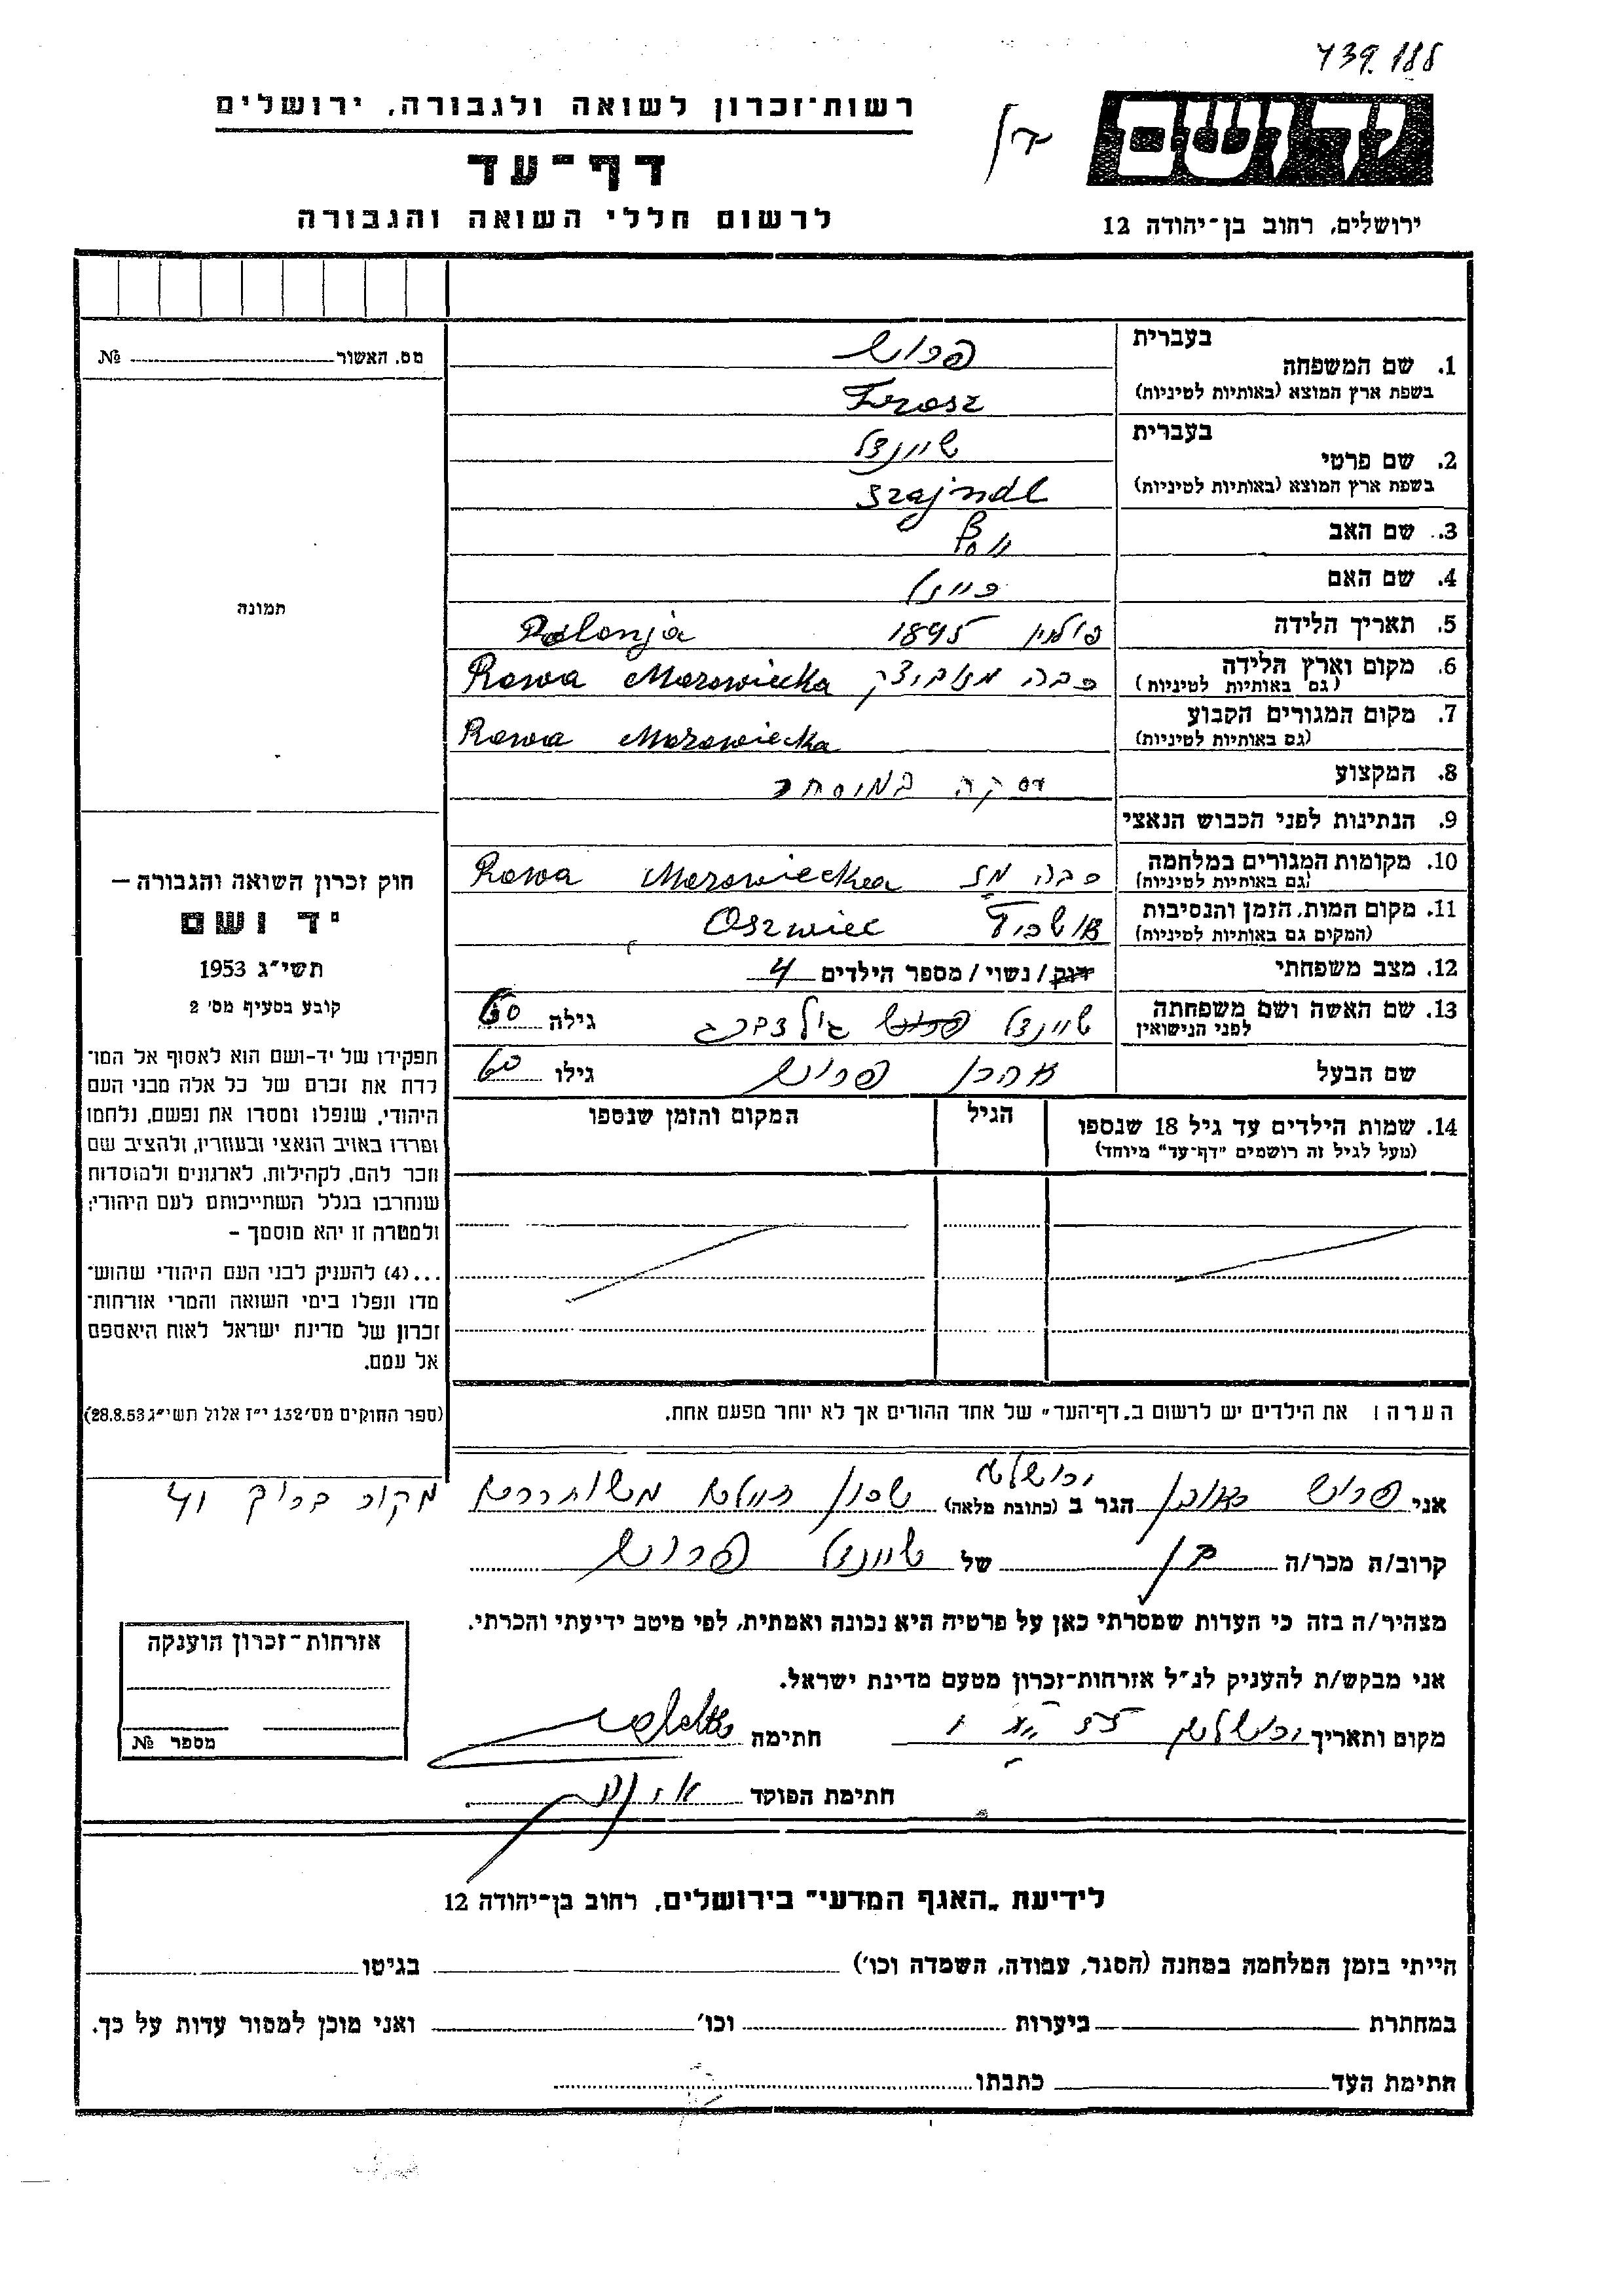 רשות־זכרון לשואה ולגבורה, ירושלים
דף־עד
לרשום חללי השואה והגבורה
יד ושם
ירושלים, רחוב בן־יהודה 12
מס. האשור № 
תמונה
חוק זכרון השואה והגבורה —
יד ושם
תשי״ג 1953
קובע בסעיף מס׳ 2
תפקידו של יד-ושם הוא לאסוף אל המו־
לדת את זכרם של כל אלה מבני העם
היהודי, שנפלו ומסרו את נפשם, נלחמו
ומרדו באויב הנאצי ובעוזריו, ולהציב שם
וזכר להם, לקהילות, לארגונים ולמוסדות
שנחרבו בגלל השתייכותם לעם היהודי;
ולמטרה זו יהא מוסמך —
...(4) להעניק לבני העם היהודי שהוש־
מדו ונפלו בימי השואה והמרי אזרחות־
זכרון של מדינת ישראל לאות היאספם
אל עמם.
(ספר החוקים מס׳ 132 י״ז אלול תשי״ג 28.8.53)
בעברית
1. שם המשפחה פרוש
בשפת ארץ המוצא (באותיות לטיניות) Frosz
בעברית
2. שם פרטי שיינדל
בשפת ארץ המוצא (באותיות לטיניות) Szajndl
3. שם האב
4. שם האם
5. תאריך הלידה פולניה 1895 Polonja
6. מקום וארץ הלידה Rawa Mazowiecka
(גם באותיות לטיניות)
7. מקום המגורים הקבוע Rawa Mazowiecka
(גם באותיות לטיניות)
8. המקצוע עסקה במוסחר
9. הנתינות לפני הכבוש הנאצי
10. מקומות המגורים במלחמה רבה מז Rawa Mazowiecka
(גם באותיות לטיניות)
11. מקום המות, הזמן והנסיבות Oszwiec
(המקום גם באותיות לטיניות)
12. מצב משפחתי רווק / נשוי / מספר הילדים 4
13. שם האשה ושם משפחתה שיינדל פרוש גולדברג גילה 60
לפני הנישואין
שם הבעל אהרן פרוש גילו 60
14. שמות הילדים עד גיל 18 שנספו הגיל המקום והזמן שנספו
(מעל לגיל זה רושמים ״דף־עד״ מיוחד)
הערה: את הילדים יש לרשום ב״דף־העד״ של אחד ההורים אך לא יותר מפעם אחת.
אני פרוש ראובן הגר ב (כתובת מלאה) ירושלים שכון חיילים משוחררים מקור ברוך
קרוב/ה מכר/ה בן של שיינדל פרוש
מצהיר/ה בזה כי העדות שמסרתי כאן על פרטיה היא נכונה ואמתית, לפי מיטב ידיעתי והכרתי.
אני מבקש/ת להעניק לנ״ל אזרחות־זכרון מטעם מדינת ישראל.
מקום ותאריך ירושלים חתימה
חתימת הפוקד
אזרחות־זכרון הוענקה
מספר №
לידיעת „האגף המדעי״ בירושלים, רחוב בן־יהודה 12
הייתי בזמן המלחמה במחנה (הסגר, עבודה, השמדה וכו׳) בגיטו
במחתרת ביערות וכו׳ ואני מוכן למסור עדות על כך.
חתימת העד כתבתו